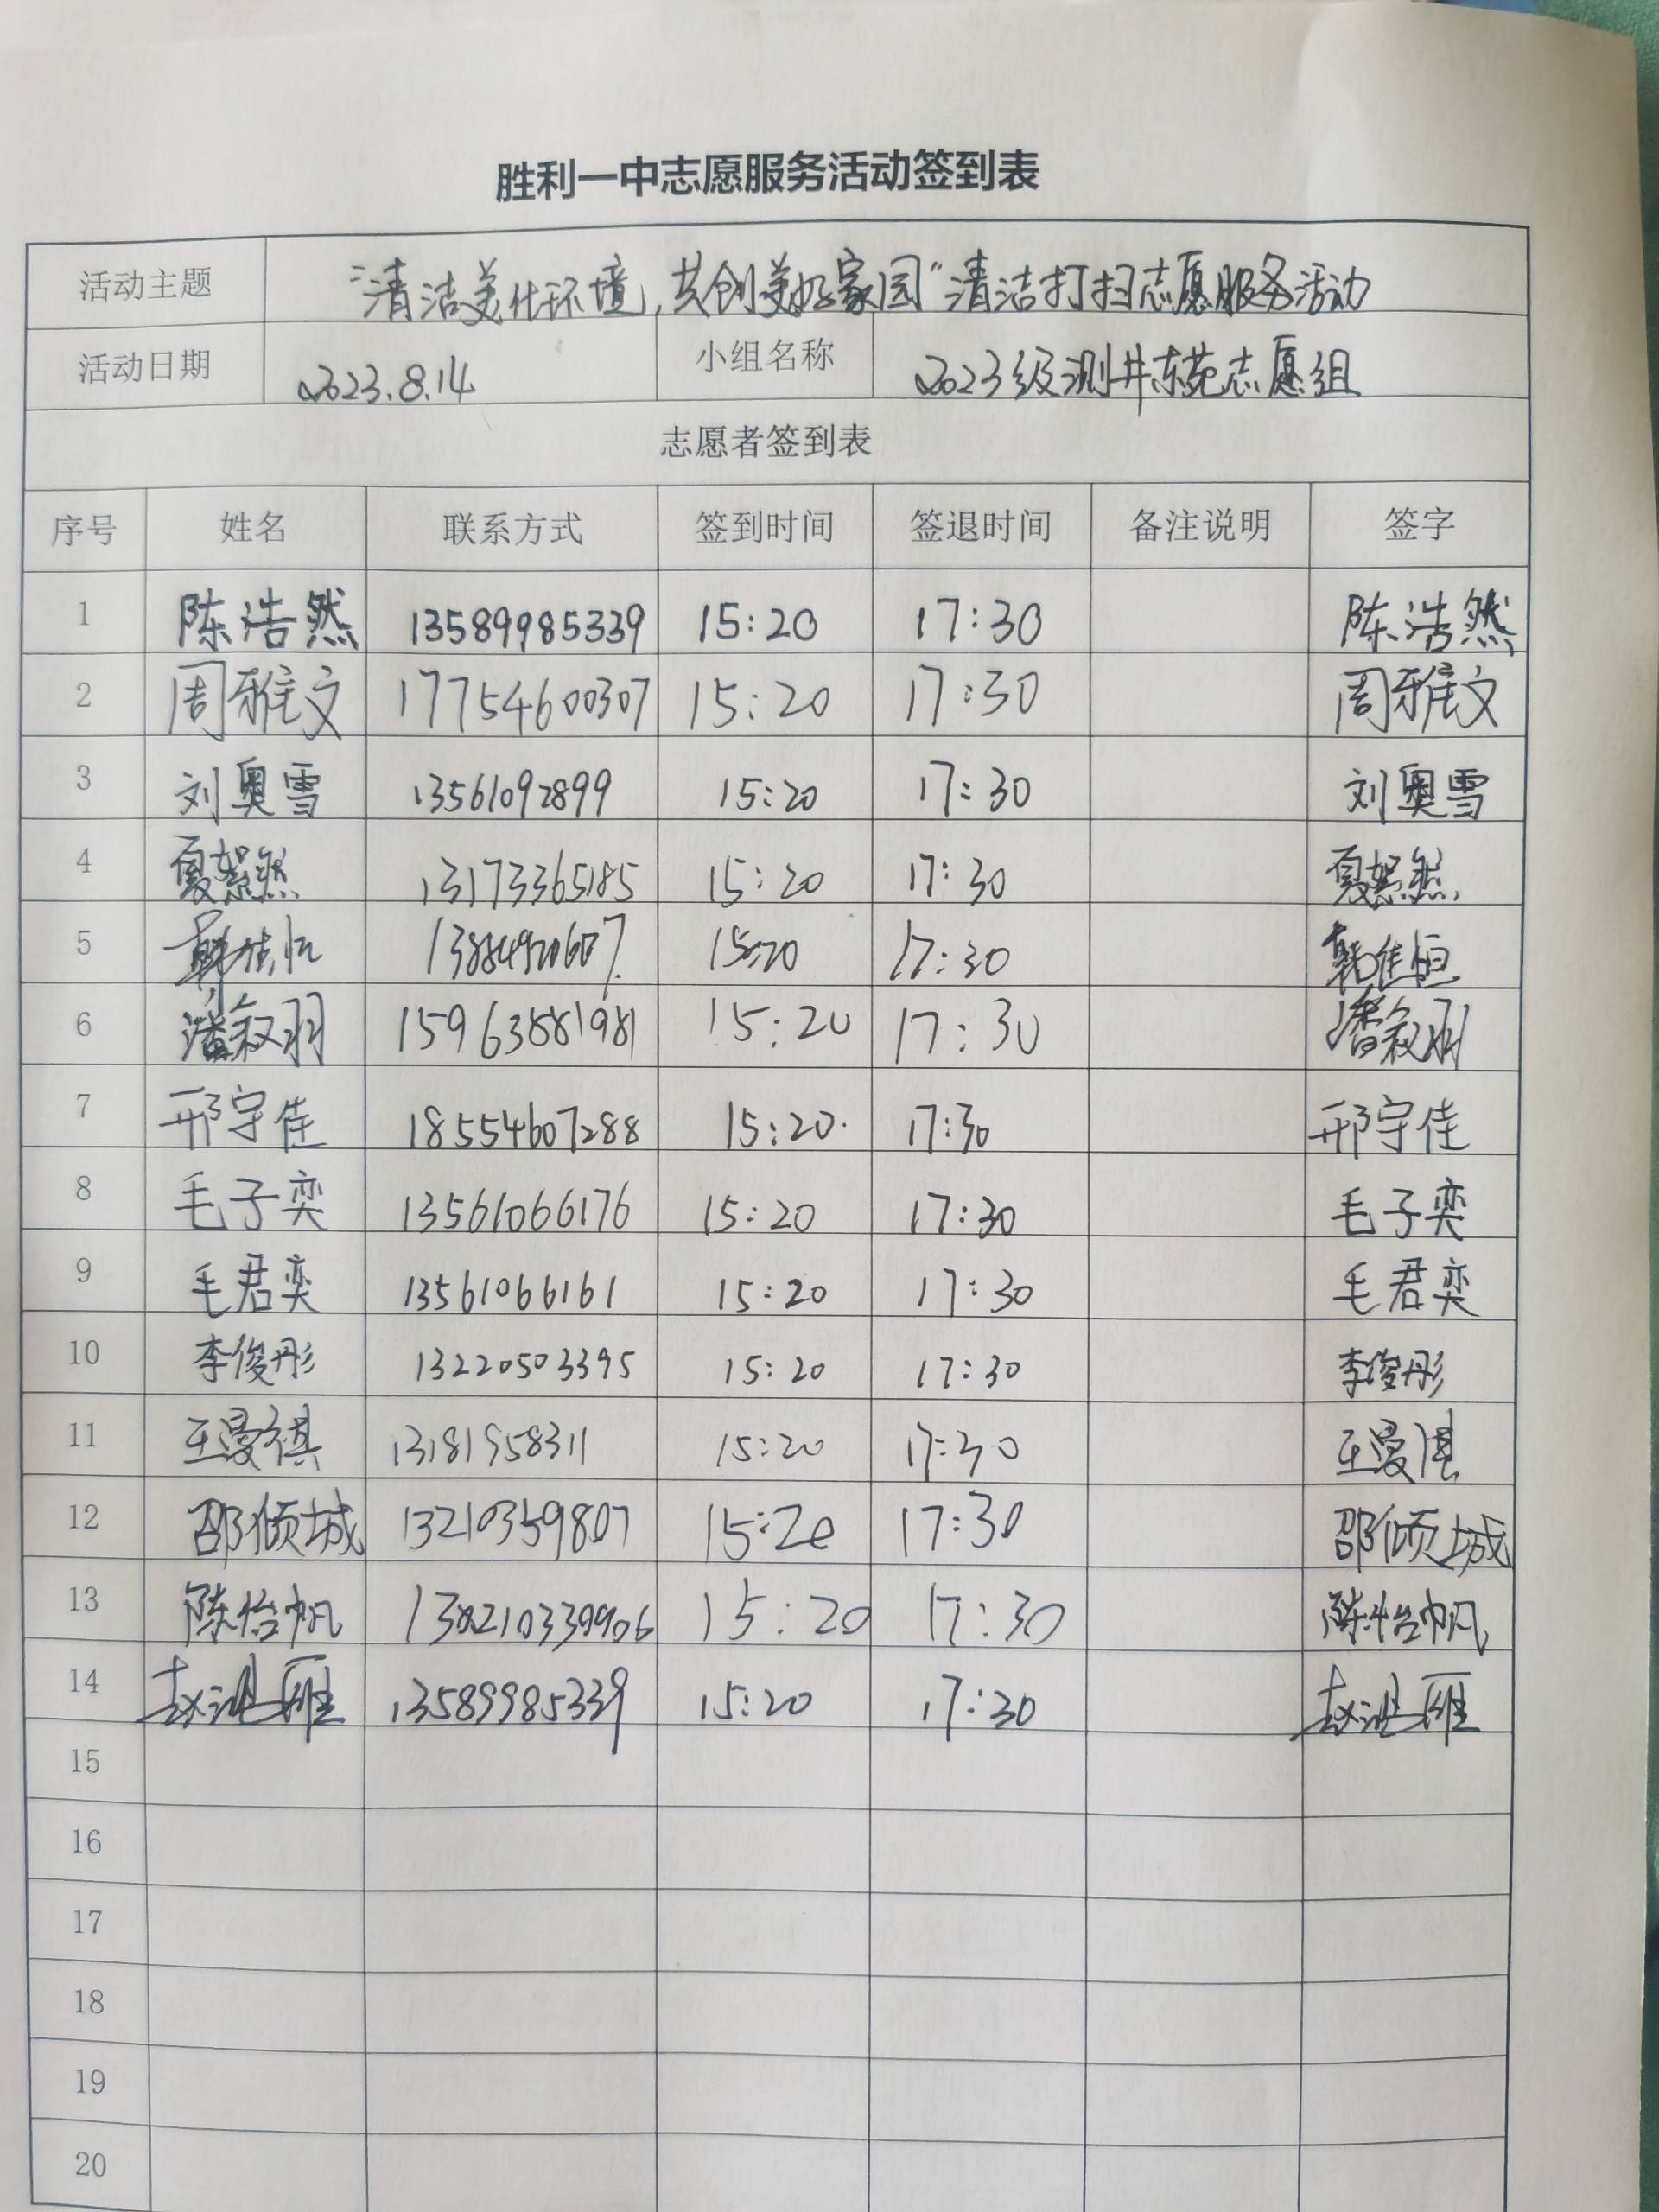 胜利一中志愿服务活动签到表
活动主题 “清洁美化环境，共创美好家园”清洁打扫志愿服务活动
活动日期 2023.8.14 小组名称 2023级测井东苑志愿组
志愿者签到表
序号 姓名 联系方式 签到时间 签退时间 备注说明 签字
1 陈浩然 13589985339 15:20 17:30 陈浩然
2 周雅文 17754600307 15:20 17:30 周雅文
3 刘奥雪 13561092899 15:20 17:30 刘奥雪
4 夏絮然 13173365185 15:20 17:30 夏絮然
5 韩佳恒 15:20 17:30 韩佳恒
6 潘叙羽 15963881981 15:20 17:30 潘叙羽
7 邢宇佳 18554607288 15:20. 17:30 邢宇佳
8 毛子奕 13561066176 15:20 17:30 毛子奕
9 毛君奕 13561066161 15:20 17:30 毛君奕
10 李俊彤 13220503395 15:20 17:30 李俊彤
11 王曼祺 13181958311 15:20 17:30 王曼祺
12 邵倾城 13210359807 15:20 17:30 邵倾城
13 陈怡帆 15:20 17:30 陈怡帆
14 13589985339 15:20 17:30
15
16
17
18
19
20